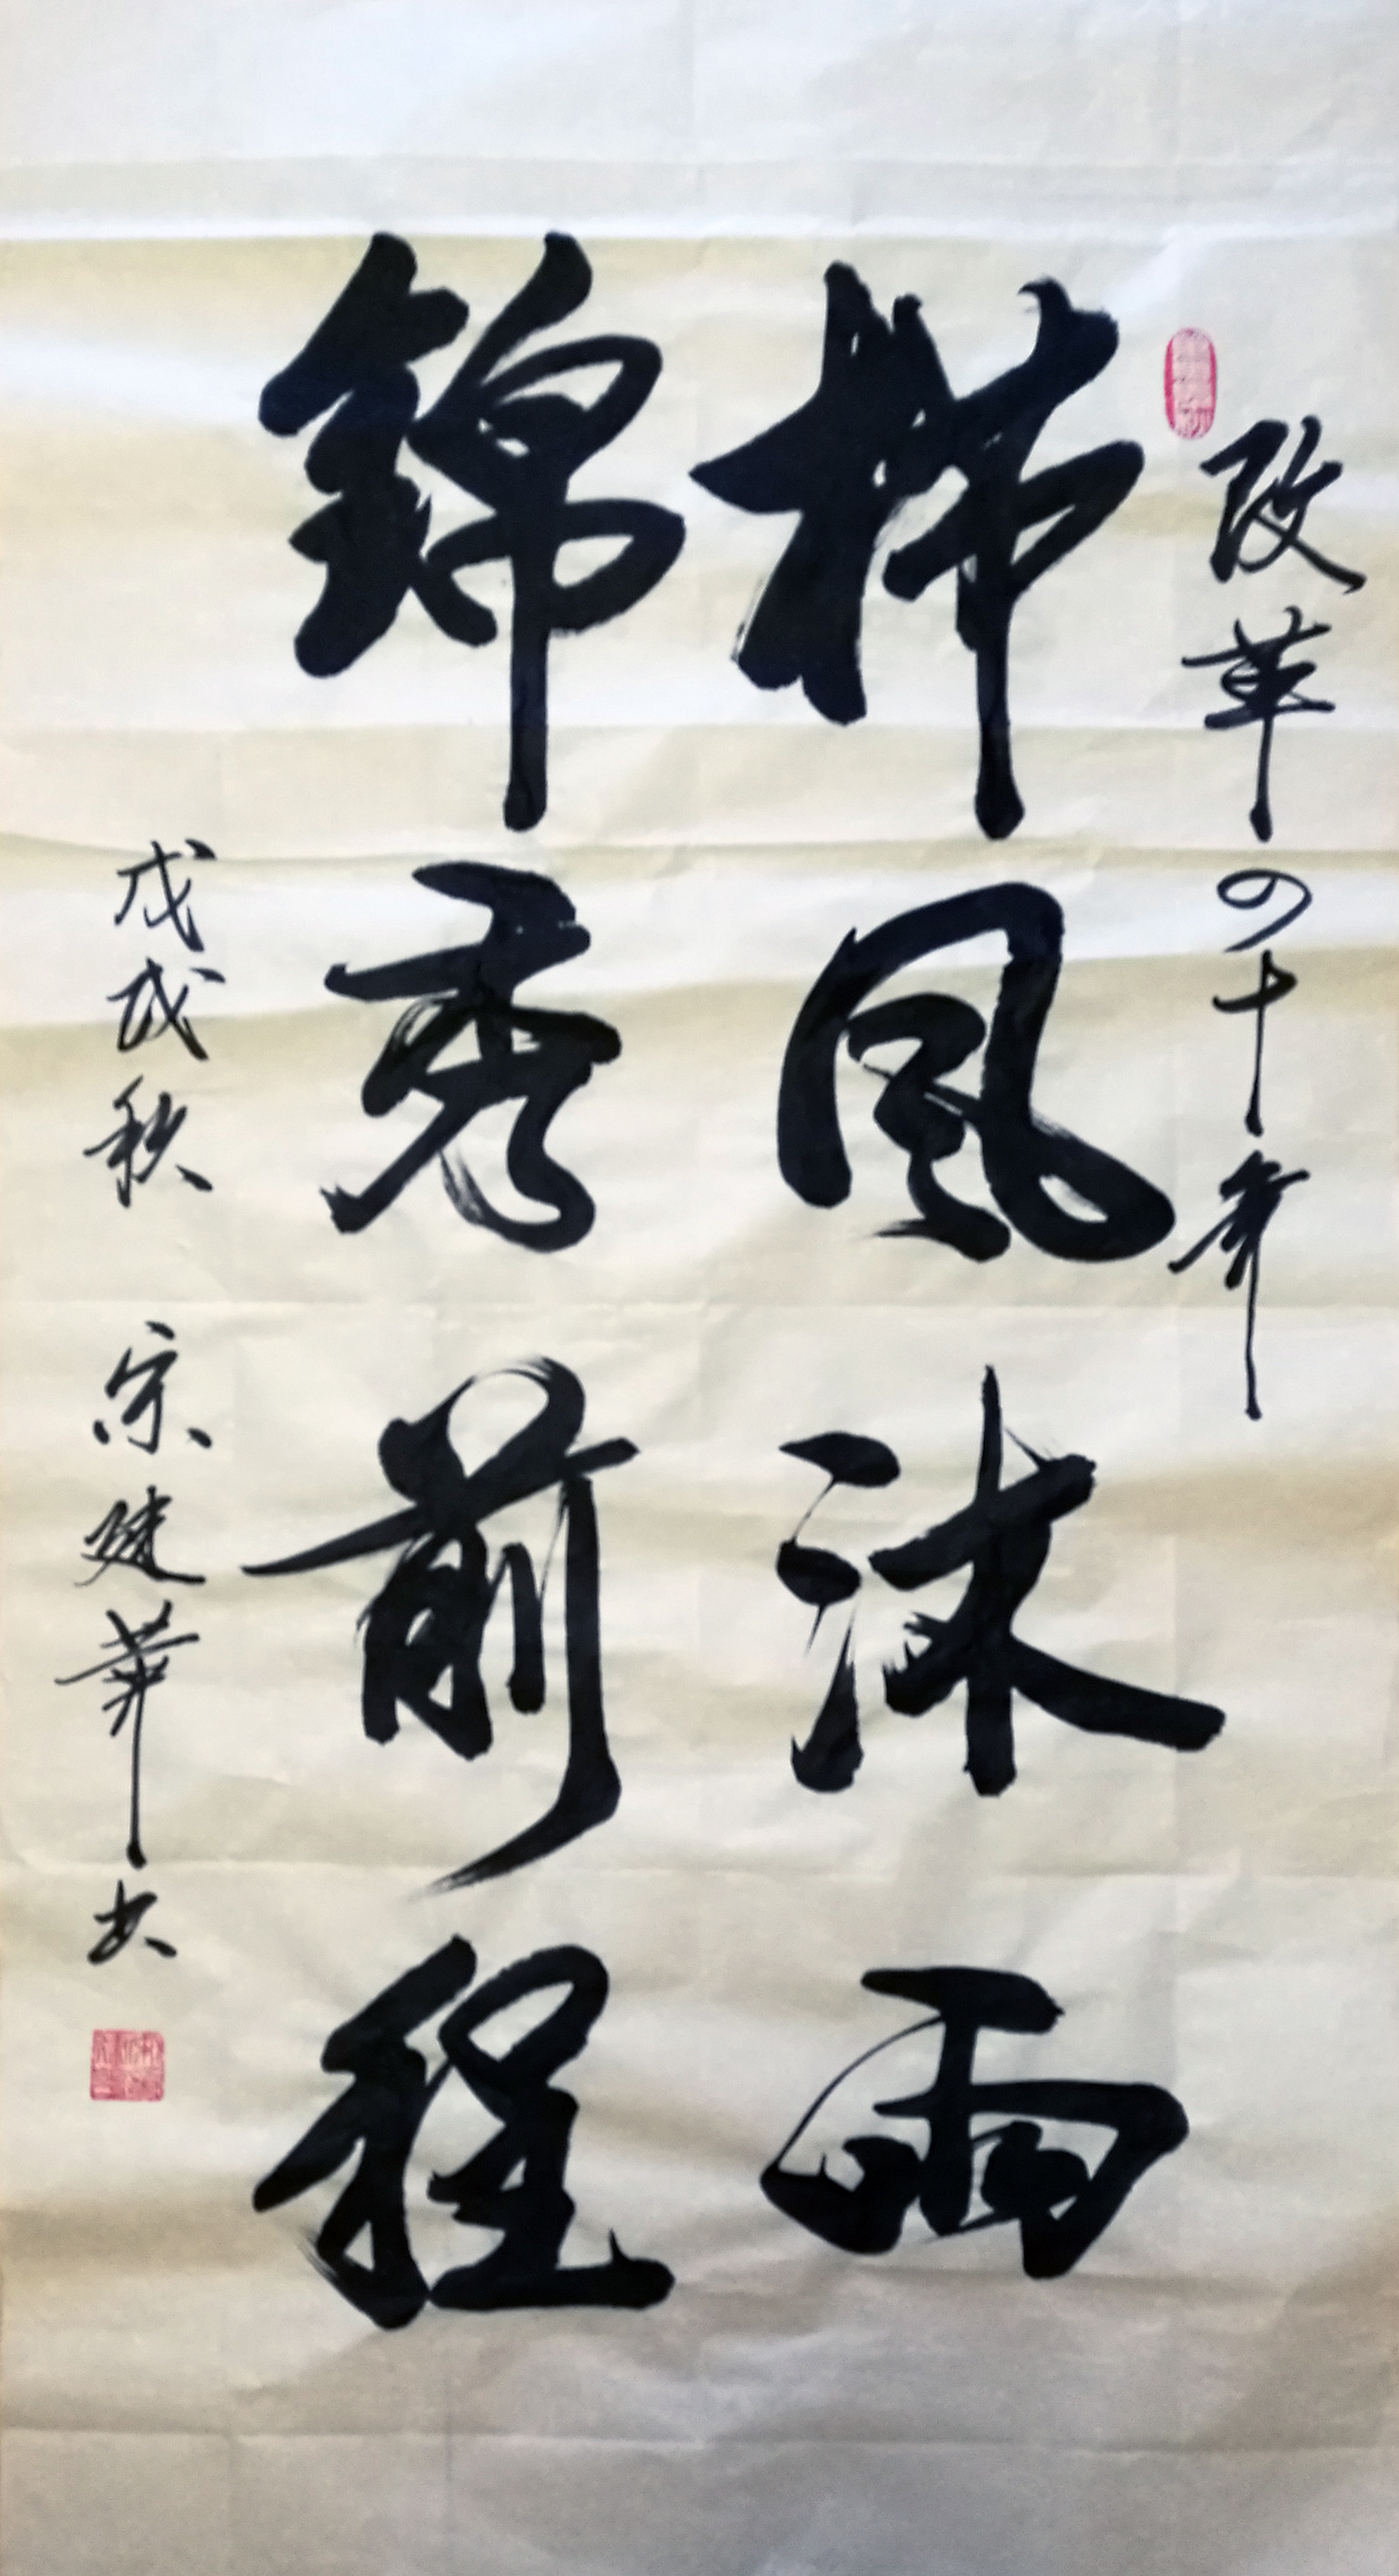 改革四十年
栉风沐雨
锦秀前程
戊戌秋 宗建華书